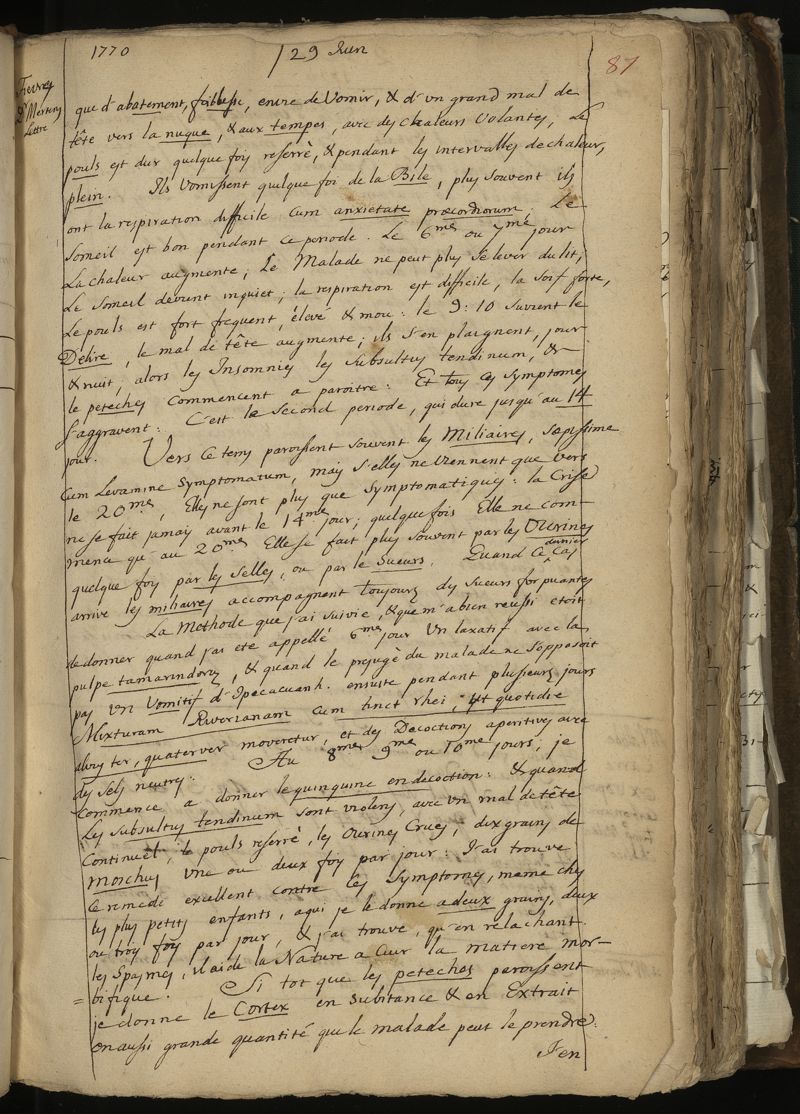 1770
129 Jun
87
Fievres
Dr Mertens
Lettre
que d'abatement, foiblesse, envie de Vomir, & d'un grand mal de
tête vers la nuque, & aux tempes, avec des chaleurs volantes, Le
pouls est dur quelque fois resserrè, & pendant les intervalles de chaleur,
plein. Ils vomissent quelque foi de la Bile, plus souvent ils
ont la respiration difficile cum anxietate præcordiorum. Le
someil est bon pendant ce periode. Le 6me ou 7me jour
La chaleur augmente, Le Malade ne peut plus se lever du lit,
Le someil devient inquiet; la respiration est difficile, la soif forte,
Le pouls est fort frequent, élevé & mou: le 9: 10 survient le
Delire, le mal de tête augmente; ils s'en plaignent, jour
& nuit, alors les Insomnies les Subsultus tendinum, &
le petechies commencent a paroitre: Et tous ces symptomes
s'aggravent: C'est le second periode, qui dure jusqu'au 14
jour. Vers ce tems paroissent souvent les Miliaires, sæpissime
cum Levamine symptomatum, mais s'elles ne viennent que vers
le 20me, Elles ne sont plus que symptomatiques: la Crise
ne se fait jamais avant le 14me jour; quelque fois Elle ne com-
mence qu'au 20me Elle se fait plus souvent par les Ourines
quelque foy par les selles, ou par le sueurs. Quand Ce dernier Cas
arrive les miliaires accompagnent toujours des sueurs for puantes
La Methode que j'ai suivie, & que m'a bien reussi etoit
de donner quand j'ai ete appellé 6me jour Un laxatif avec la
pulpe tamarindorum, & quand le prejugè du malade ne s'opposoit
pas un Vomitif d'Ipecacuanh. ensuite pendant plusieurs jours
Mixturam Riverianam cum tinct rhei, ut quotidie
alvus ter, quaterver moveretur, et des Decoctions aperitives avec
des sels neutres. Au 8me 9me ou 10me jours, je
commence a donner le quinquine en decoction: & quand
Les subsultus tendinum sont violens, avec un mal de tête
Continuel, le pouls resserrè, les Ourines Crues, dix grains de
Moschus une ou deux foy par jour: J'ai trouve
ce remede excellent contre ces symptomes, meme ches
les plus petits enfants, a qui je le donne a deux grains, deux
ou trois foy par jour, & j'ai trouve, qu'en relachant
les spasmes, il aide la Nature a Cuir la matiere mor-
= bifique. Si tot que les peteches paroissent
je donne le Cortex en substance & en Extrait
en aussi grande quantité que le malade peut le prendre.
J'en